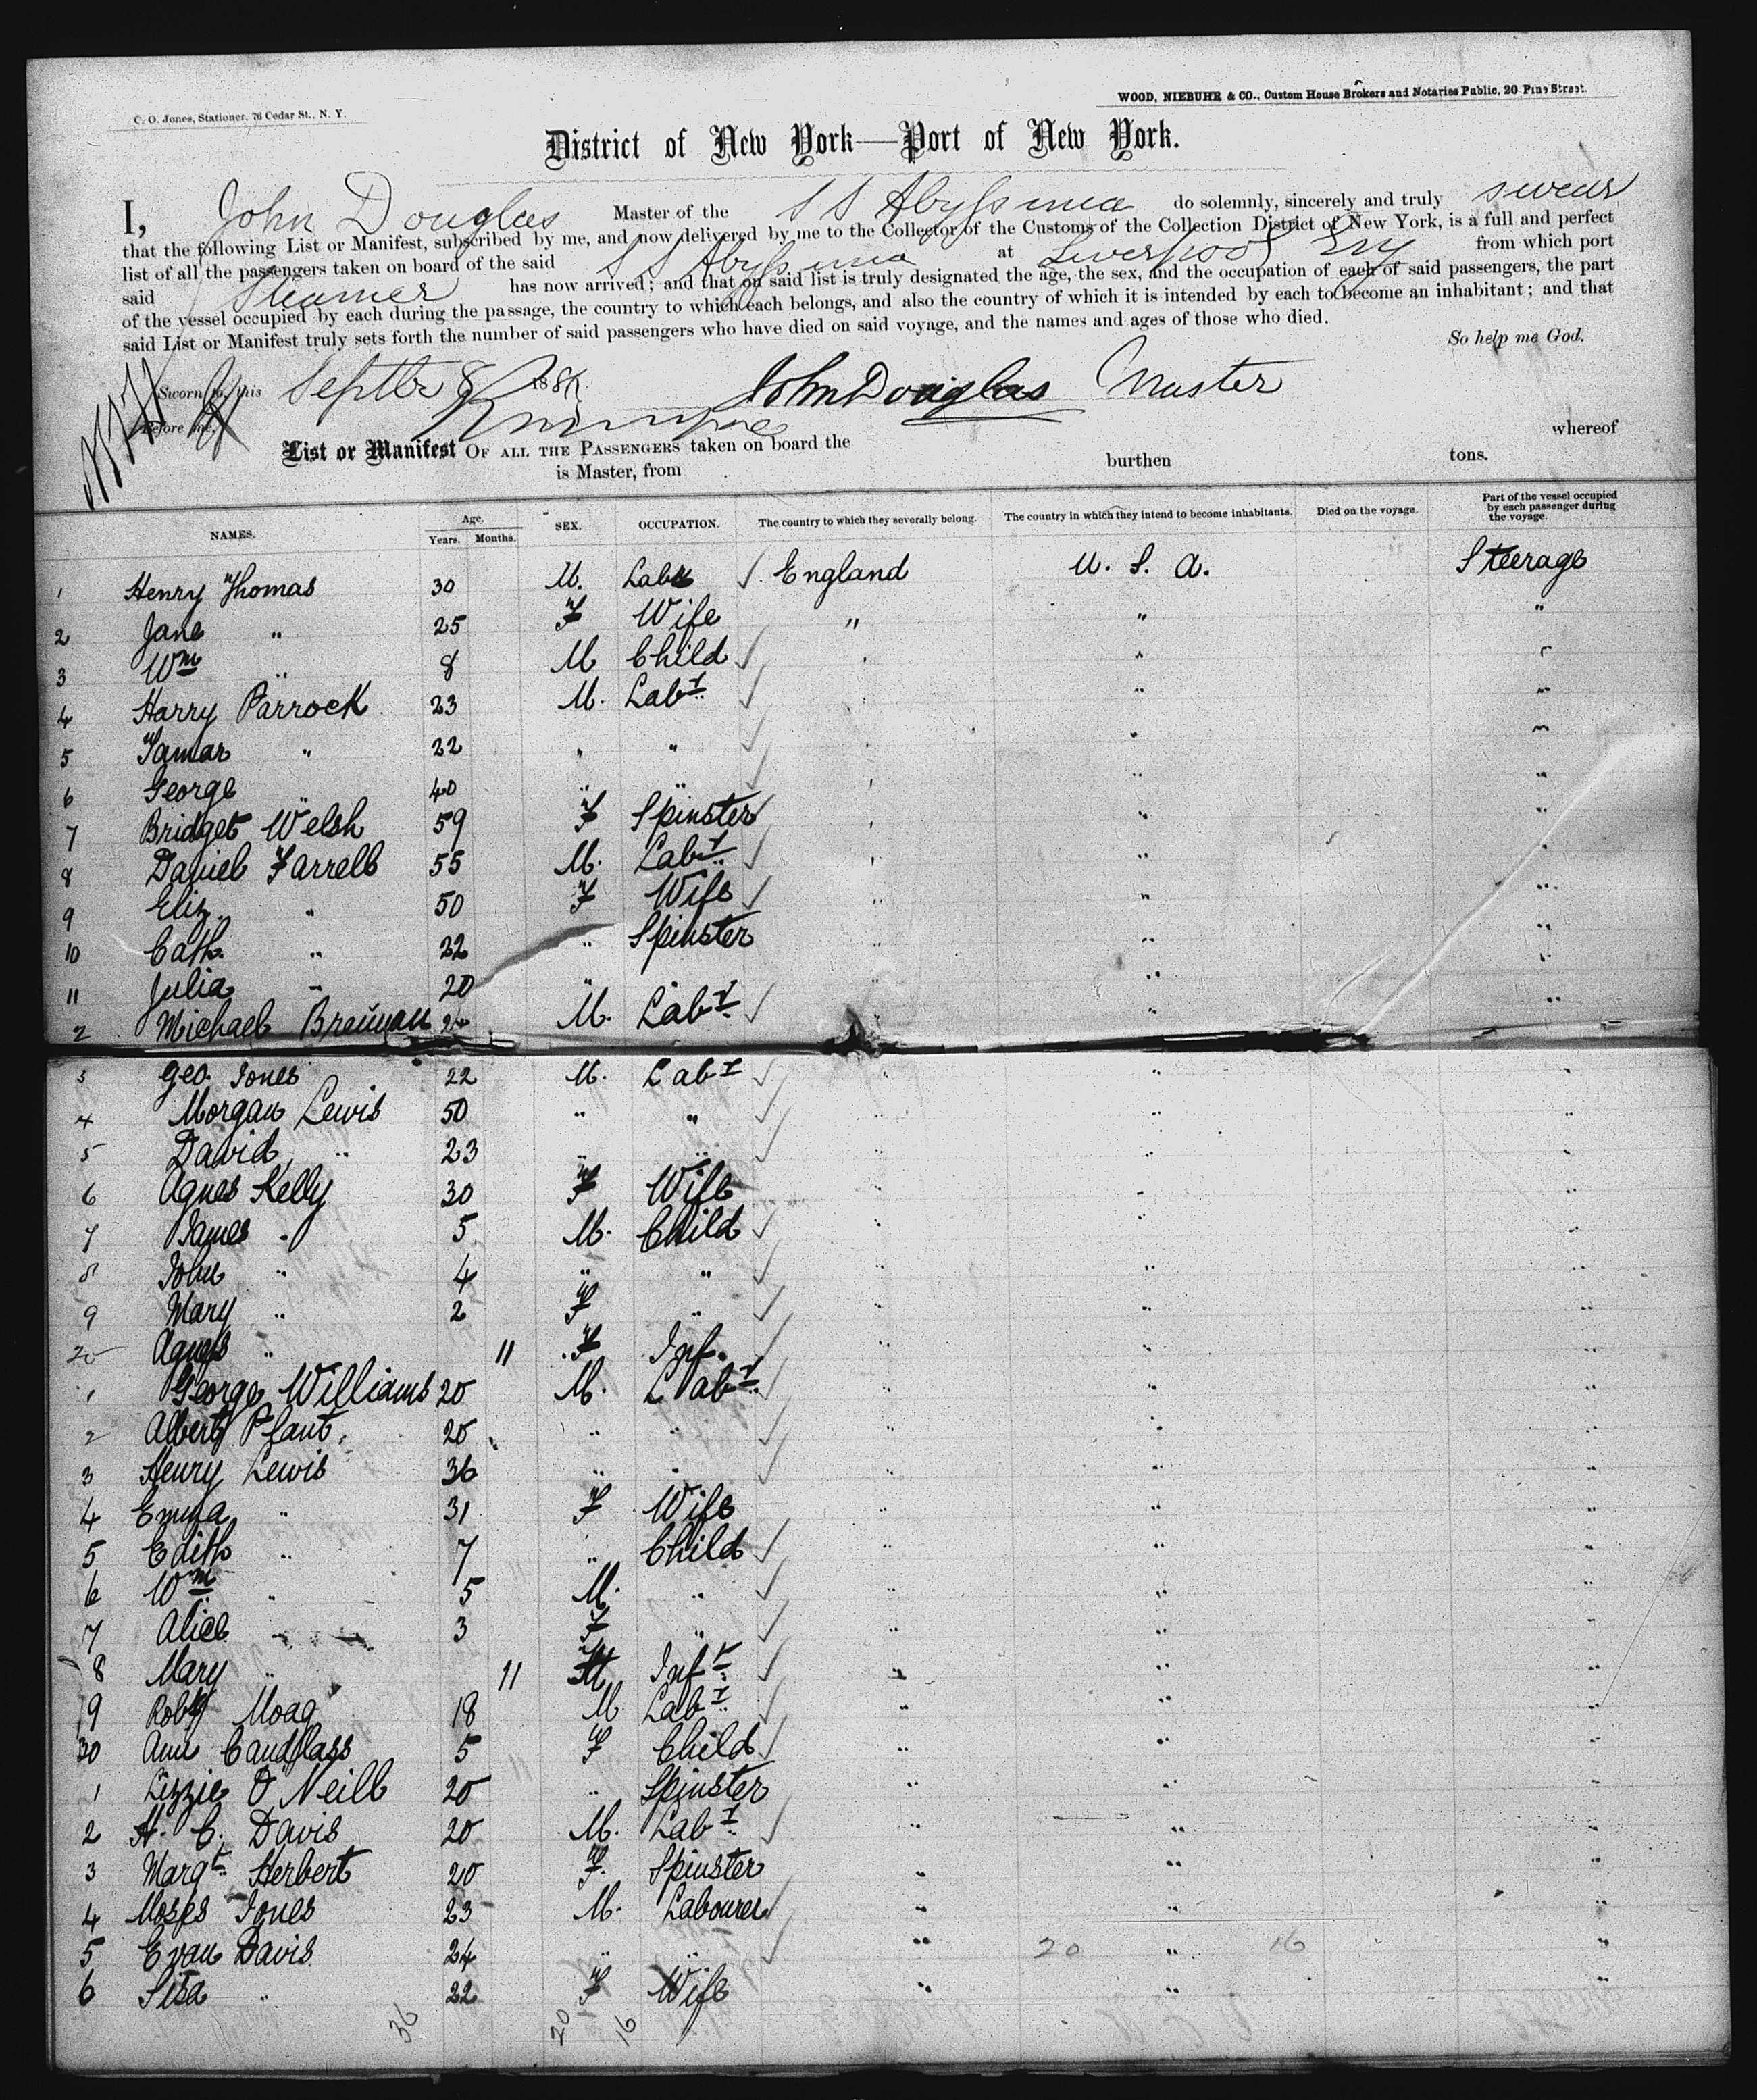 C. O. Jones, Stationer, 76 Cedar St., N. Y.
WOOD, NIEBUHR & CO., Custom House Brokers and Notaries Public, 20 Pine Street.
District of New York—Port of New York.
I, John Douglas Master of the S S Abyssinia do solemnly, sincerely and truly swear
that the following List or Manifest, subscribed by me, and now delivered by me to the Collector of the Customs of the Collection District of New York, is a full and perfect
list of all the passengers taken on board of the said S S Abyssinia at Liverpool from which port
said Steamer has now arrived; and that on said list is truly designated the age, the sex, and the occupation of each of said passengers, the part
of the vessel occupied by each during the passage, the country to which each belongs, and also the country of which it is intended by each to become an inhabitant; and that
said List or Manifest truly sets forth the number of said passengers who have died on said voyage, and the names and ages of those who died.
So help me God.
Sworn to this Septbr 8 188 John Douglas Master
Before me,
List or Manifest OF ALL THE PASSENGERS taken on board the whereof
is Master, from burthen tons.
NAMES. Age. Years. Months. SEX. OCCUPATION. The country to which they severally belong. The country in which they intend to become inhabitants. Died on the voyage. Part of the vessel occupied by each passenger during the voyage.
1 Henry Thomas 30 M. Labr ✓ England U. S. A. Steerage
2 Jane " 25 F Wife " " "
3 Wm " 8 M Child ✓ " " "
4 Harry Parrock 23 M. Labr ✓ " " "
5 Tamar " 22 " " ✓ " " "
6 George " 40 " " ✓ " " "
7 Bridget Welsh 59 F Spinster ✓ " " "
8 Daniel Farrell 55 M. Labr ✓ " " "
9 Eliz. " 50 F Wife ✓ " " "
10 Cath. " 22 " Spinster " " "
11 Julia " 20 " " " " "
2 Michael Brennan 24 M. Labr ✓ " " "
3 Geo. Jones 22 M. Labr ✓ " " "
4 Morgan Lewis 50 " " ✓ " " "
5 David " 23 " " ✓ " " "
6 Agnes Kelly 30 F Wife " " "
7 James " 5 M. Child ✓ " " "
8 John " 4 " " ✓ " " "
9 Mary " 2 F " ✓ " " "
20 Agnes " 11 F Inf. ✓ " " "
1 George Williams 20 M. Labr ✓ " " "
2 Albert Plant 20 " " ✓ " " "
3 Henry Lewis 36 " " ✓ " " "
4 Emma " 31 F Wife " " "
5 Edith " 7 " Child ✓ " " "
6 Wm " 5 M. " ✓ " " "
7 Alice " 3 F " ✓ " " "
8 Mary " 11 Inft ✓ " " "
9 Robt Moag 18 M Labr ✓ " " "
30 Ann Candlass 5 F Child ✓ " " "
1 Lizzie O'Neill 20 " Spinster " " "
2 H. C. Davis 20 M. Labr ✓ " " "
3 Margt Herbert 20 F. Spinster " " "
4 Moses Jones 23 M. Labourer ✓ " " "
5 Evan Davis 24 " " ✓ " 20 " 16 "
6 Lisa " 22 F Wife " " "
36 20 16